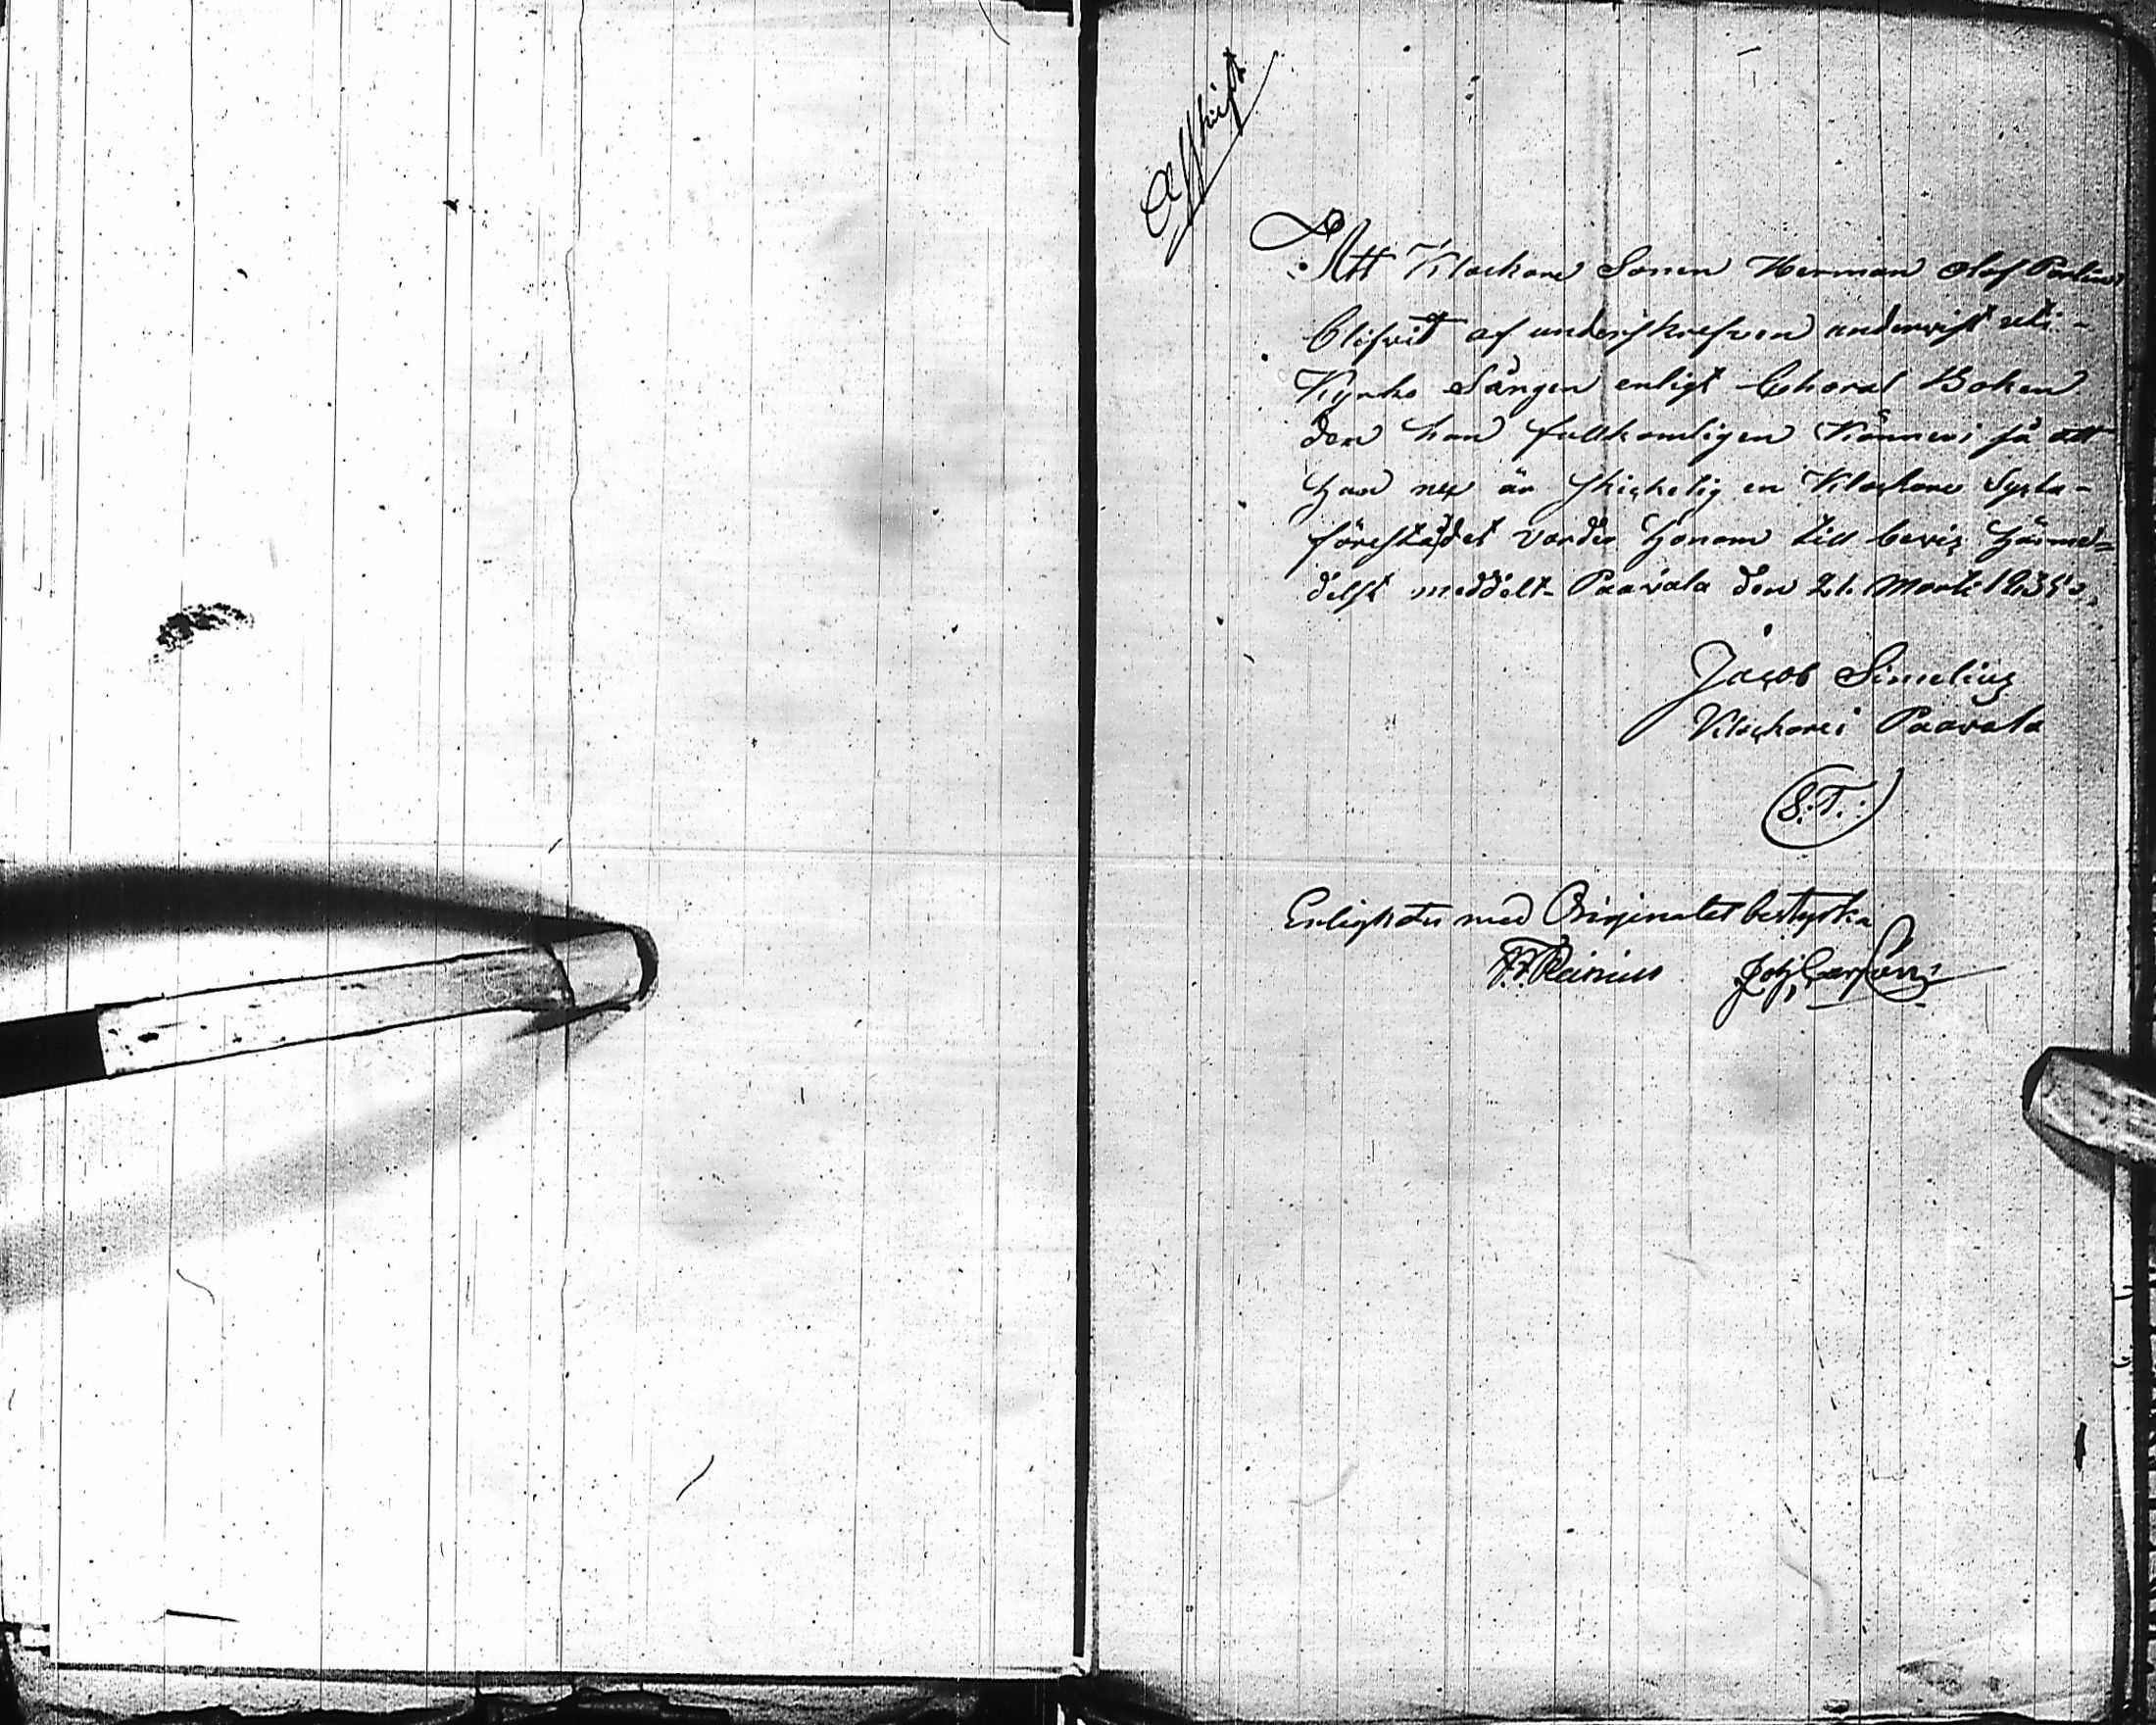 Afskrift
Att Klockare Sonen Herman Olof
blifvit af underskrefven undervist uti-
Kyrko Sången enligt Choral Boken
den han fullkomligen Känner så att
han nu är skickelig en Klockare Sysla-
förestå, det varder honom till bevis härme-
delst meddelt. Paavola den 21. Martii
Jacob Simelius
Klockare i Paavola
(S.T.:)
Enligheten med Originalet bestyrka